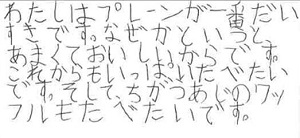 わたしはプレーンが一番だい
すきです。なぜかというと
あまくておいしいからです。
これからもいっぱいたべたい
です。そして、ちがうあじのワッ
フルもたべたいです。